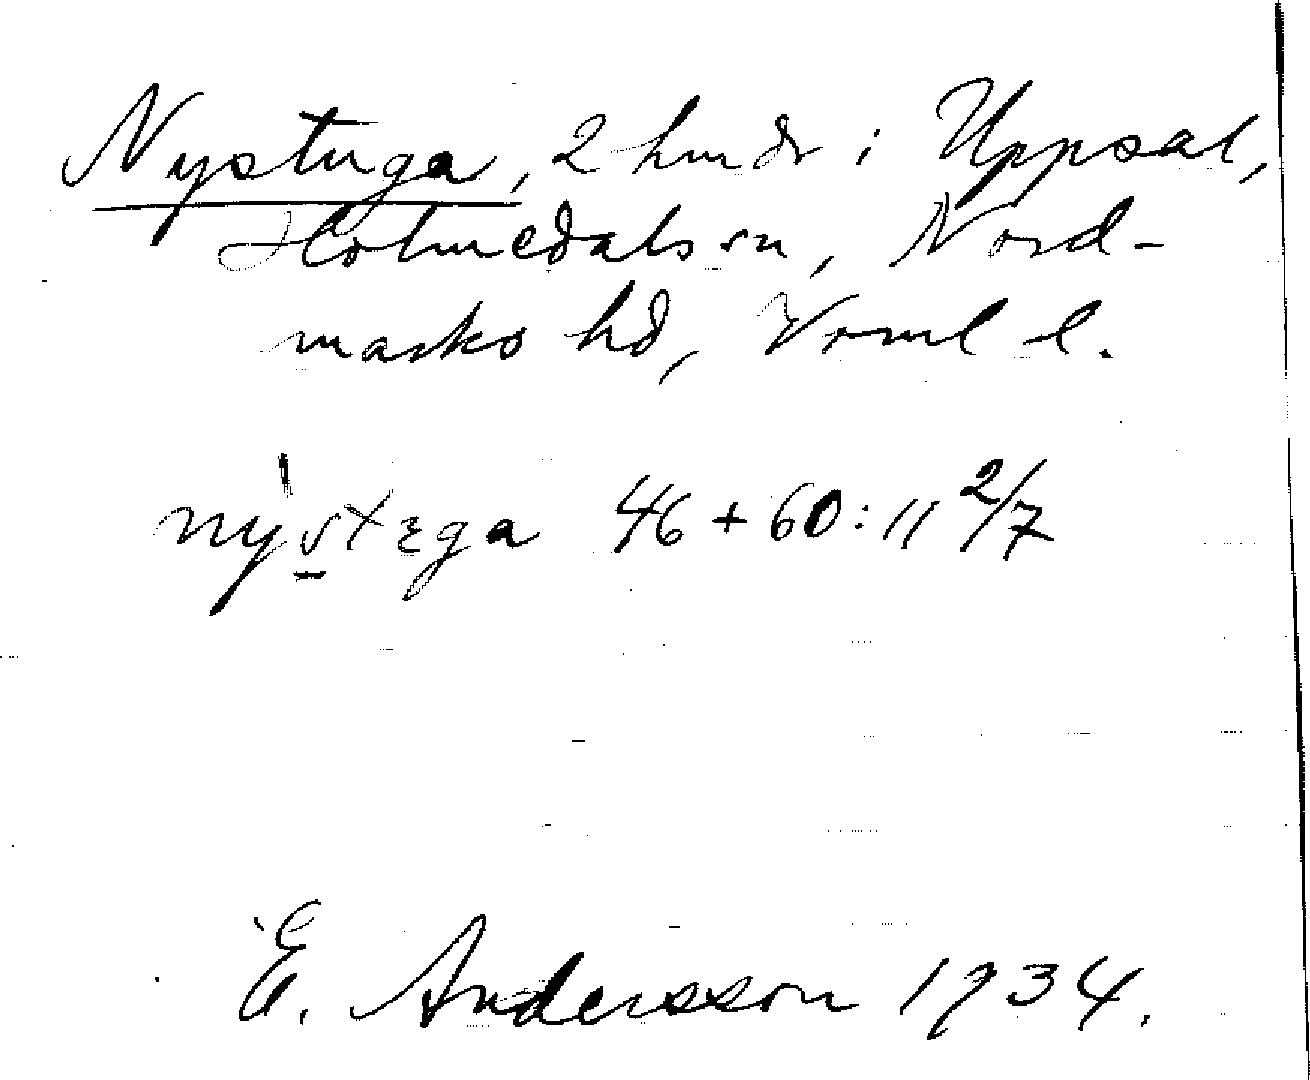 Nystuga, 2 hmdr i Uppsal,
Holmedals sn, Nord-
marks hd, Vrml l.
ny̍stɛga 46 + 60:11 2/7
E. Andersson 1934.